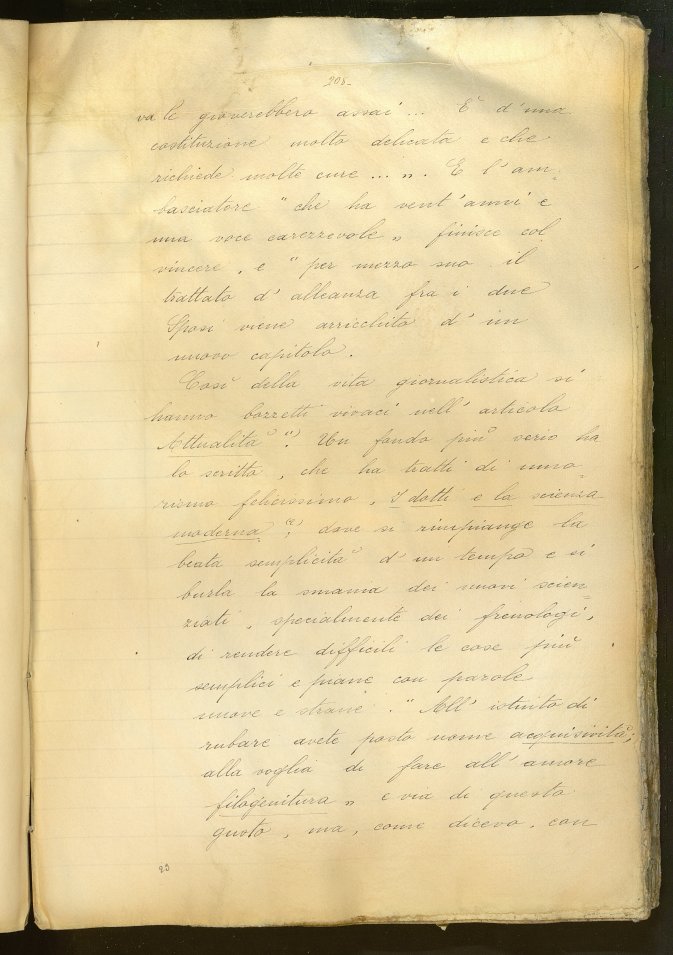 208-
va le gioverebbero assai... È d'una
costituzione molto delicata e che
richiede molte cure...„. E l'am-
basciatore "che ha vent'anni e
una voce carezzevole„ finisce col
vincere, e "per mezzo suo il
trattato d'alleanza fra i due
Sposi viene arricchito d'un
nuovo capitolo.
Così della vita giornalistica si
hanno bozzetti vivaci nell'articolo
Attualità (1). Un fondo più serio ha
lo scritto, che ha tratti di umo
rismo felicissimo, I dotti e la scienza
moderna (2), dove si rimpiange la
beata semplicità d'un tempo e si
burla la smania dei nuovi scien-
ziati, specialmente dei frenologi,
di rendere difficili le cose più
semplici e piane con parole
nuove e strane. "All'istinto di
rubare avete posto nome acquisività;
alla voglia di fare all'amore
filogenitura„ e via di questo
gusto, ma, come dicevo, con
23